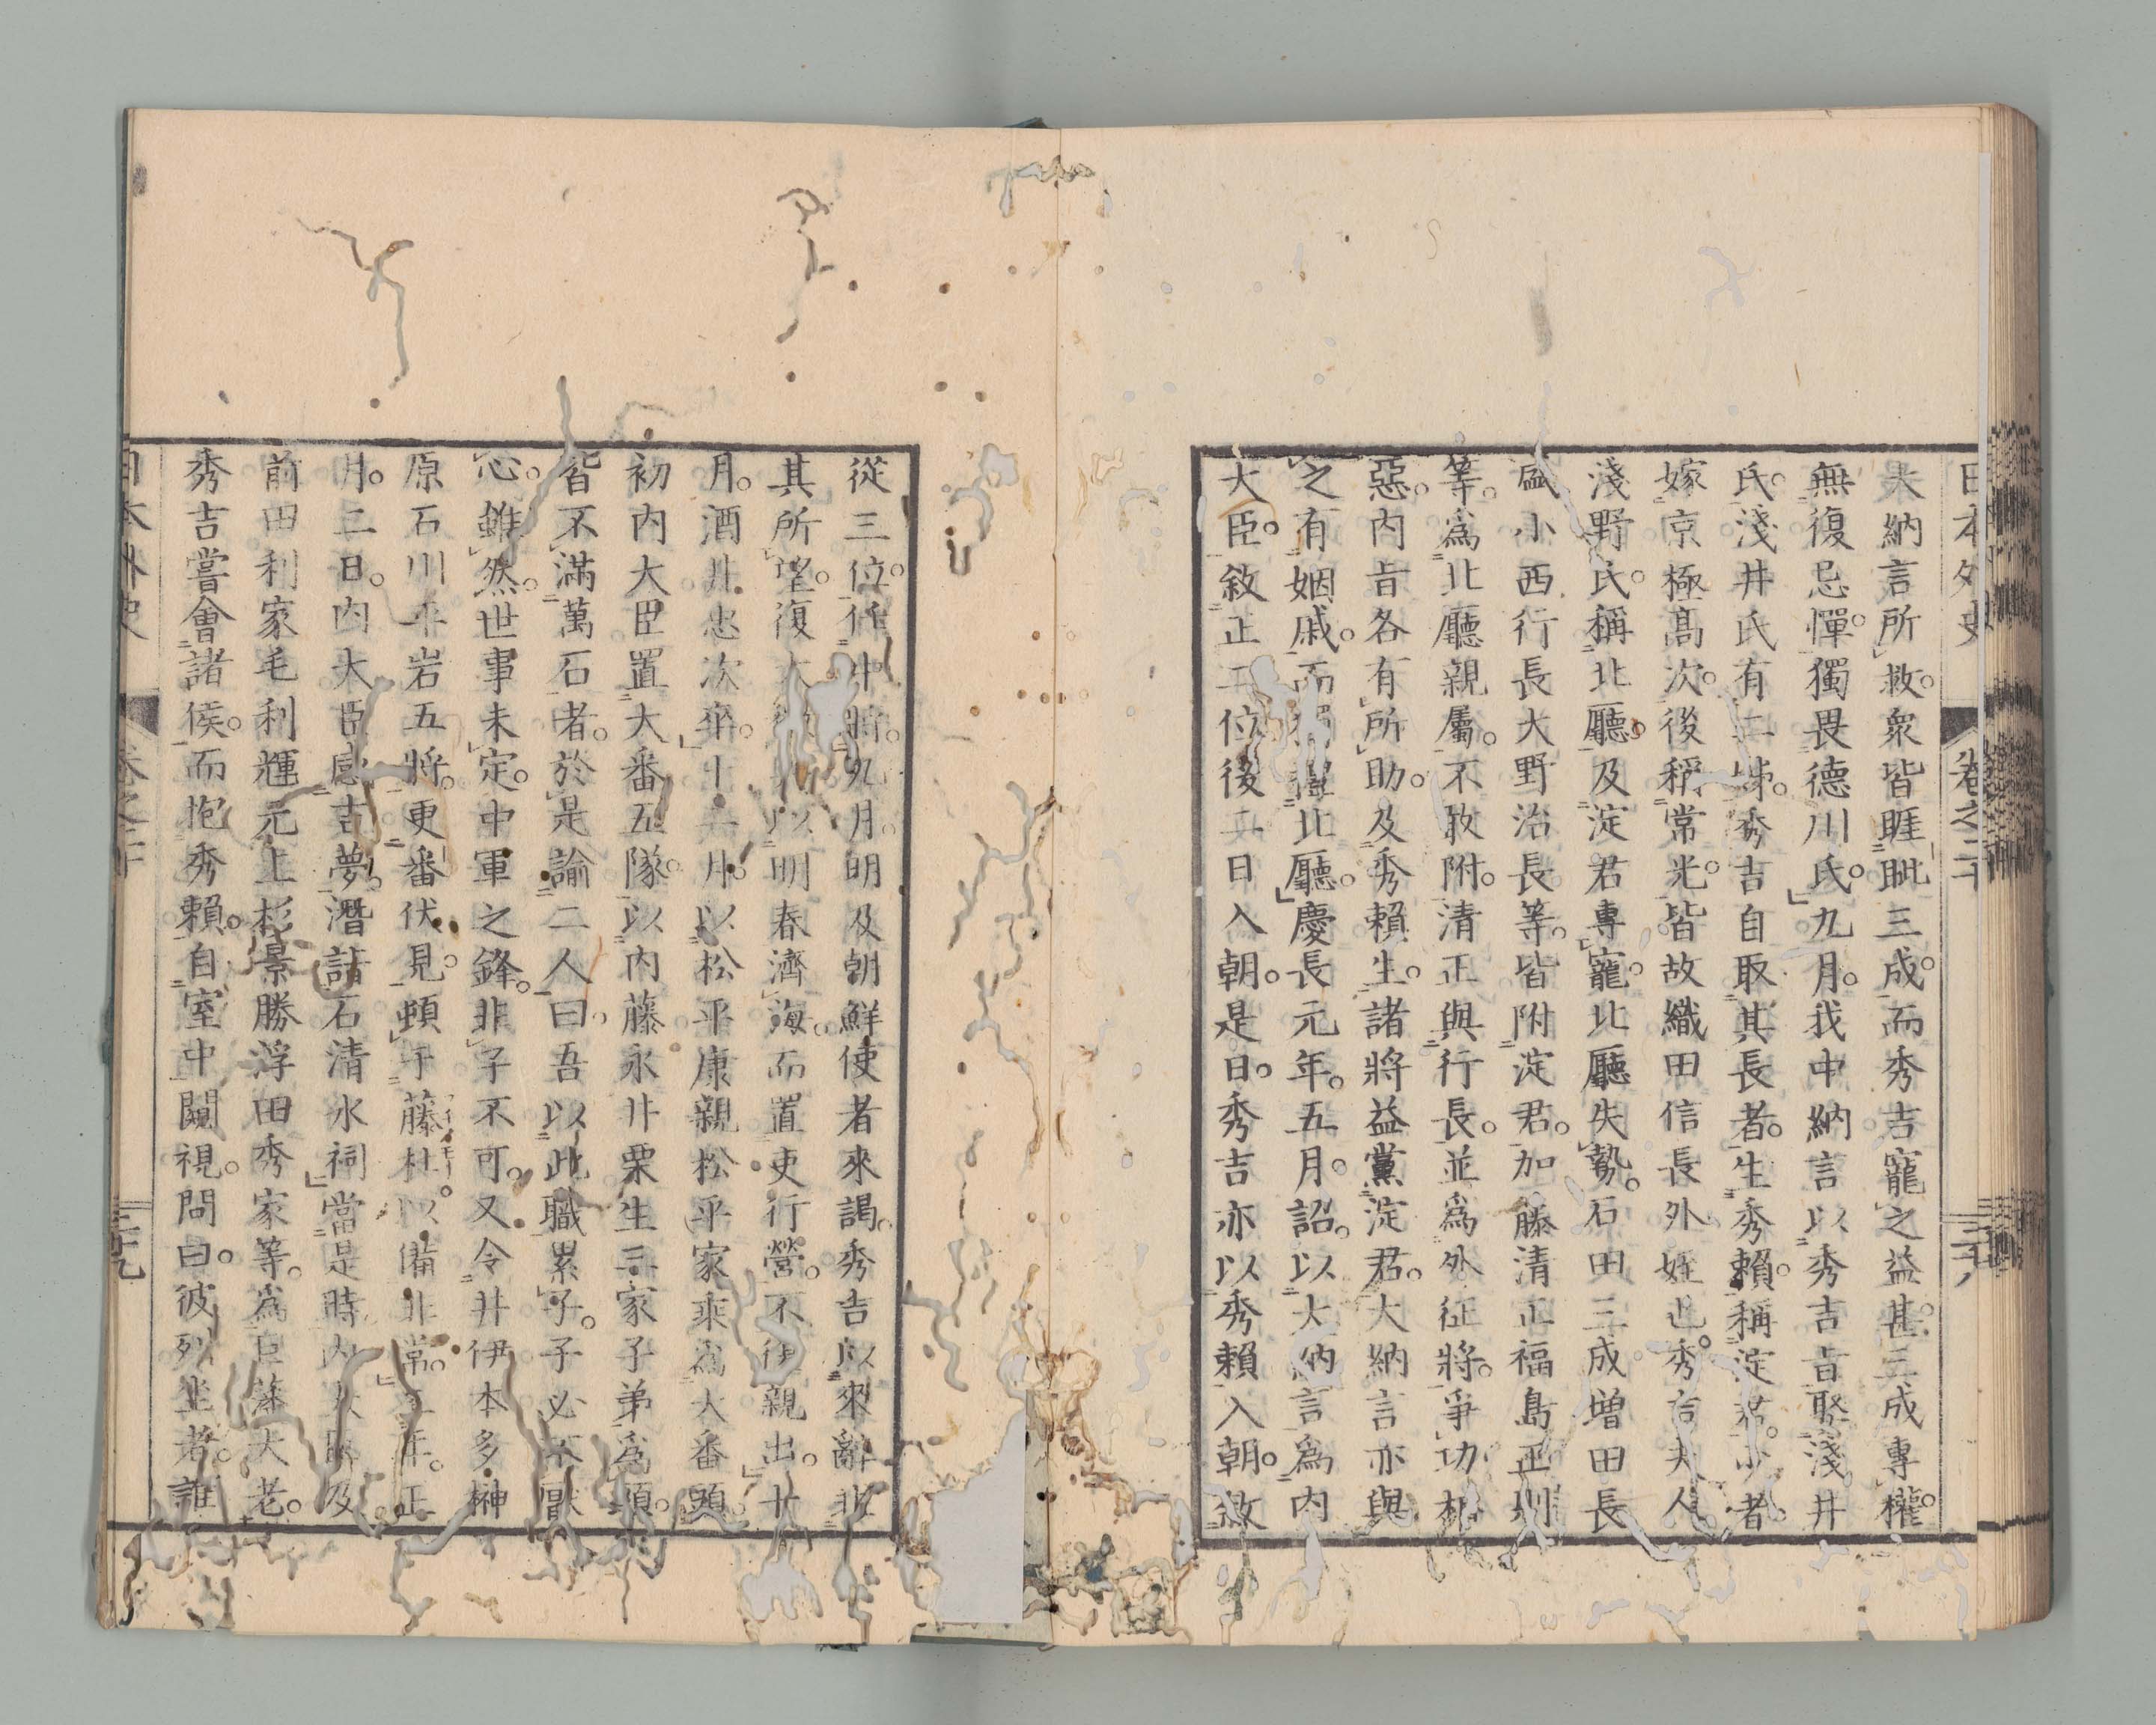 日本外史 卷之二十
大納言所救。衆皆睚眦三成。而秀吉寵之益甚。三成專權。
無復忌憚。獨畏德川氏。九月。我中納言以秀吉旨娶淺井
氏。淺井氏有二姊。秀吉自取其長者。生秀賴。稱淀君。少者。
嫁京極高次。後稱常光。皆故織田信長外姪也。秀吉夫人
淺野氏。稱北廳。及淀君專寵。北廳失勢。石田三成增田長
盛小西行長大野治長等。皆附淀君。加藤清正福島正則
等。爲北廳親屬。不敢附。清正與行長。並爲外征將。爭功相
惡。內旨各有所助。及秀賴生。諸將益黨淀君。大納言亦與
之有姻戚。而獨北廳。慶長元年。五月。詔。以大納言爲內
大臣。敘正二位。後二日入朝。是日。秀吉亦以秀賴入朝。敘
從三位。任中將。九月。明及朝鮮使者來謁。秀吉以來辭非
其所望。復大以明春濟海。而置吏行營。不復親出。十
月。酒井忠次卒。十一月。以松平康親松平家乘爲大番頭。
初內大臣置大番五隊。以內藤永井粟生三家子弟爲頭。
皆不滿萬石者。於是諭二人曰。吾以此職累子。子必不厭
心。雖然。世事未定。中軍之鋒。非子不可。又令井伊本多榊
原石川平岩五將。更番伏見。頓于藤杜。以備非常。二年。正
月。二日。內大臣感吉夢。潛詣石清水祠。當是時。內大臣及
前田利家毛利輝元上杉景勝浮田秀家等。爲巨藩大老。
秀吉嘗會諸侯。而抱秀賴。自室中闚視。問曰。彼列坐者。誰
日本外史 卷之二十 二十九